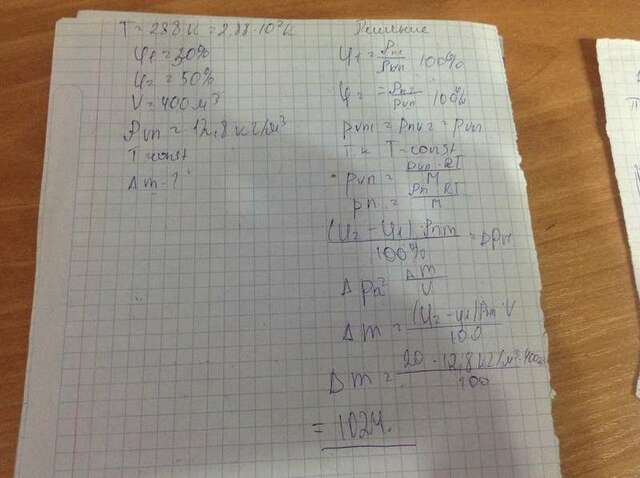 T = 288 K = 2,88·10² K
φ₁ = 30%
φ₂ = 50%
V = 400 м³
ρнп = 12,8 кг/м³
T const
Δm - ?
Решение
φ₁ = ρп1/ρнп 100%
φ₂ = ρп2/ρнп 100%
ρнп1 = ρнп2 = ρнп
т.к T-const
pнп = ρнп·RT/M
pп = ρп·RT/M
(φ₂ - φ₁)·ρнп/100% = Δρп
Δρп = Δm/V
Δm = (φ₂ - φ₁)ρнп·V/100
Δm = 20·12,8 кг/м³·400/100
= 1024.